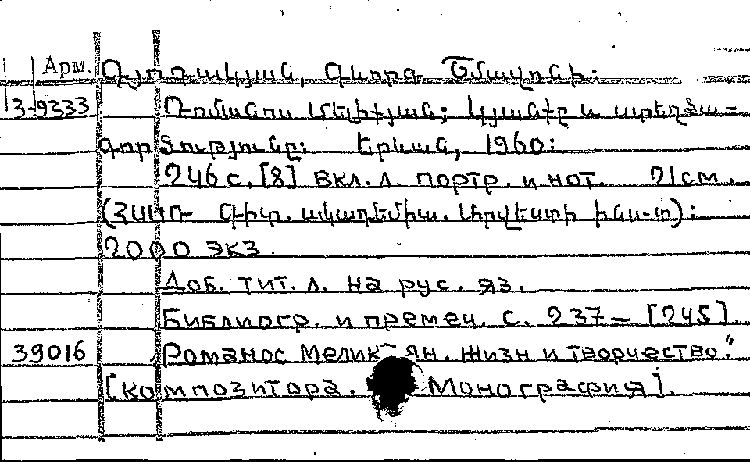 Арм. Գյոդակյան, Գևորգ Շմավոնի։
3-9333 Ռոմանոս Մելիքյան; Կյանքը և ստեղծա-
գործությունը։ Երևան, 1960։
246 с. [8] вкл. л. портр. и нот. 21 см.
(ՀՍՍՌ Գիտ. ակադեմիա. Արվեստի ինս-տ)։
2000 экз
Доб. тит. л. на рус. яз.
Библиогр. и премеч. с. 237— [245].
39016 Романос Мелик- ян. жизн и творчество."
[композитора. Монография].